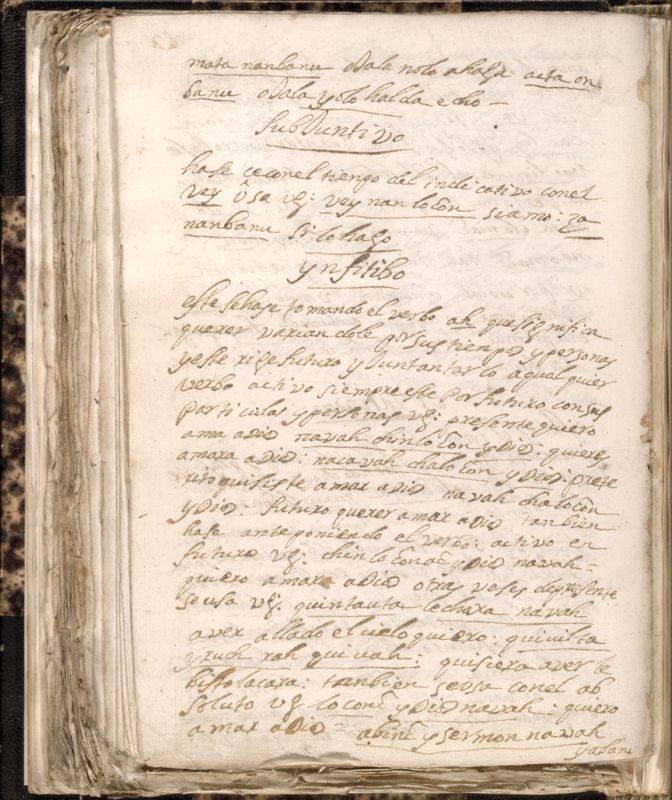 mata nanbanu oJala nolo ahaga acta on
banu oJala yolo halda echo –
SubJuntivo
hase ce con el tiempo del indicativo con el
vey Usa vg: vey nan locon siamo: ta
nanbanu si lo hago
ynfitibo
este se hase tomando el verbo ah que significa
querer variandole por sus tiempos y personas
y este rige futuro y Juntantarlo a qual quier
verbo activo siempre este por futuro con sus
particulas y personas vg: presente quiero
ama a Dio navah chinlocon y Dio: quieres
amara a Dio: nacavah chalocon y Dio: prete
rito quisiste amar a Dio navah chalocon
y Dio: futuro querer amar a Dio tanbien
hase anteponiendo el verbo: activo en
futuro vg: chinlocon y Dio navah =
quiero amar a Dio otras veses de presente
se usa vg: quintauta lechara navah
a ver allado el cielo quiero: quivilta
y ruch rah quivah: quisiera averle
bisto la cara: tanbien se usa con el ab
soluto vg loconc y Dio navah: quiero
amar a Dio = abinc y sermon navah
yabanu